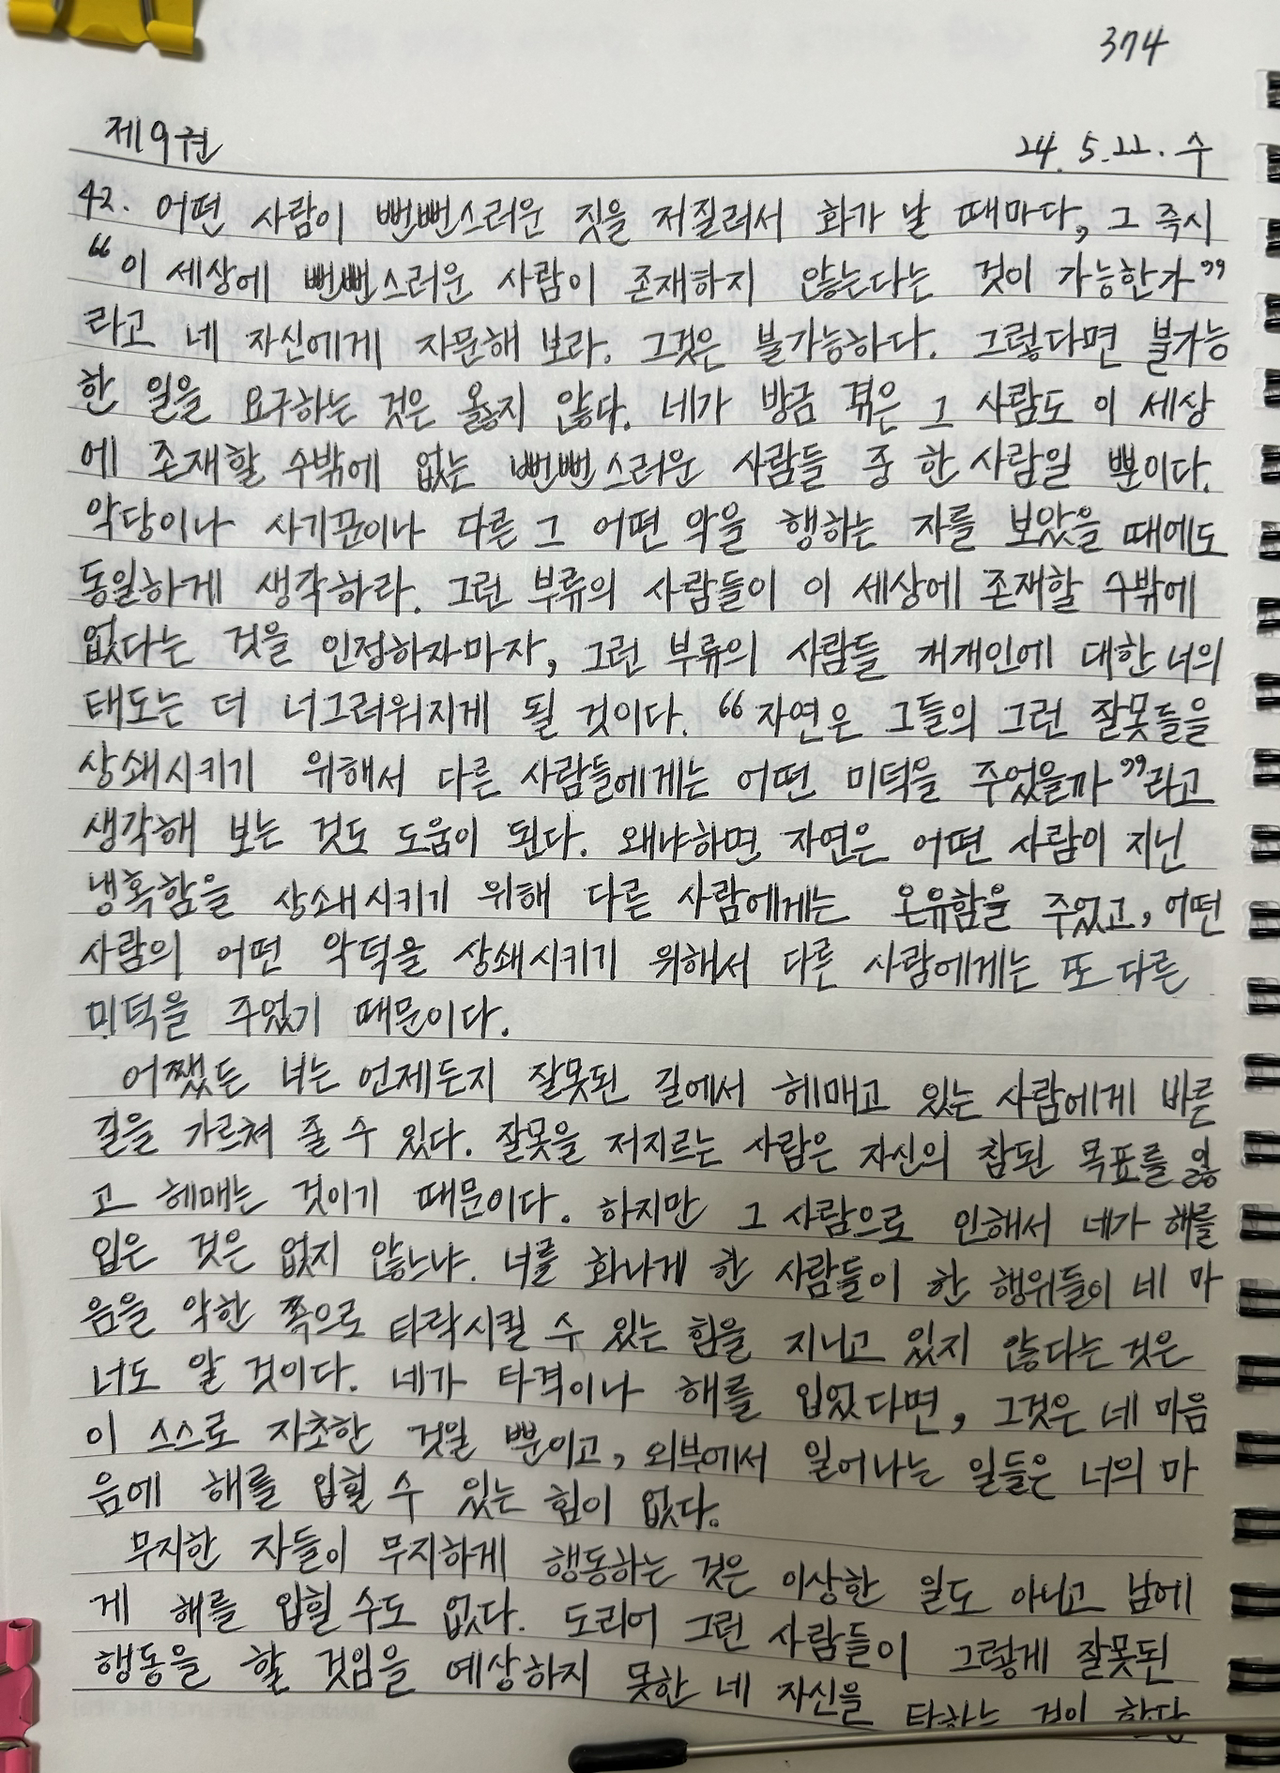 374
제9권 24. 5. 22. 수
42. 어떤 사람이 뻔뻔스러운 짓을 저질러서 화가 날 때마다, 그 즉시
“이 세상에 뻔뻔스러운 사람이 존재하지 않는다는 것이 가능한가”
라고 네 자신에게 자문해 보라. 그것은 불가능하다. 그렇다면 불가능
한 일을 요구하는 것은 옳지 않다. 네가 방금 겪은 그 사람도 이 세상
에 존재할 수밖에 없는 뻔뻔스러운 사람들 중 한 사람일 뿐이다.
악당이나 사기꾼이나 다른 그 어떤 악을 행하는 자를 보았을 때에도
동일하게 생각하라. 그런 부류의 사람들이 이 세상에 존재할 수밖에
없다는 것을 인정하자마자, 그런 부류의 사람들 개개인에 대한 너의
태도는 더 너그러워지게 될 것이다. “자연은 그들의 그런 잘못들을
상쇄시키기 위해서 다른 사람들에게는 어떤 미덕을 주었을까”라고
생각해 보는 것도 도움이 된다. 왜냐하면 자연은 어떤 사람이 지닌
냉혹함을 상쇄시키기 위해 다른 사람에게는 온유함을 주었고, 어떤
사람의 어떤 악덕을 상쇄시키기 위해서 다른 사람에게는 또 다른
미덕을 주었기 때문이다.
어쨌든 너는 언제든지 잘못된 길에서 헤매고 있는 사람에게 바른
길을 가르쳐 줄 수 있다. 잘못을 저지르는 사람은 자신의 참된 목표를 잃
고 헤매는 것이기 때문이다. 하지만 그 사람으로 인해서 네가 해를
입은 것은 없지 않느냐. 너를 화나게 한 사람들이 한 행위들이 네 마
음을 악한 쪽으로 타락시킬 수 있는 힘을 지니고 있지 않다는 것은
너도 알 것이다. 네가 타격이나 해를 입었다면, 그것은 네 마음
이 스스로 자초한 것일 뿐이고, 외부에서 일어나는 일들은 너의 마
음에 해를 입힐 수 있는 힘이 없다.
무지한 자들이 무지하게 행동하는 것은 이상한 일도 아니고 남에
게 해를 입힐 수도 없다. 도리어 그런 사람들이 그렇게 잘못된
행동을 할 것임을 예상하지 못한 네 자신을 탓하는 것이